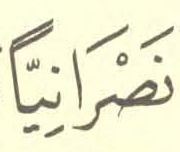 نَصْرَانِيًّا